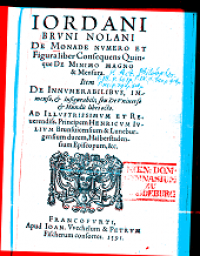 IORDANI
BRVNI NOLANI
DE MONADE NVMERO ET
Figura liber Consequens Quin-
que DE MINIMO MAGNO
& Mensura.
Item
DE INNVMERABILIBVS, IM-
menso, & Infigurabili; seu De Vniuerso
& Mundis libri octo.
AD ILLVSTRISSIMVM ET RE-
uerendiss. Principem HENRICVM IV-
LIVM Brunsuicensium & Lunebur-
gensium ducem, Halberstaden-
sium Episcopum, &c.
FRANCOFVRTI,
Apud IOAN. VVechelum & PETRVM
Fischerum consortes. 1591.